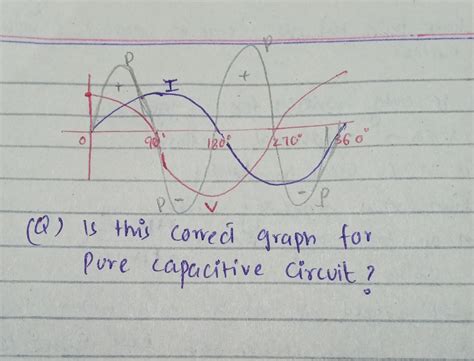 P
P
+
I
+
0
90°
180°
270°
360°
P
-
V
-
P
(Q) Is this correct graph for
Pure capacitive circuit?